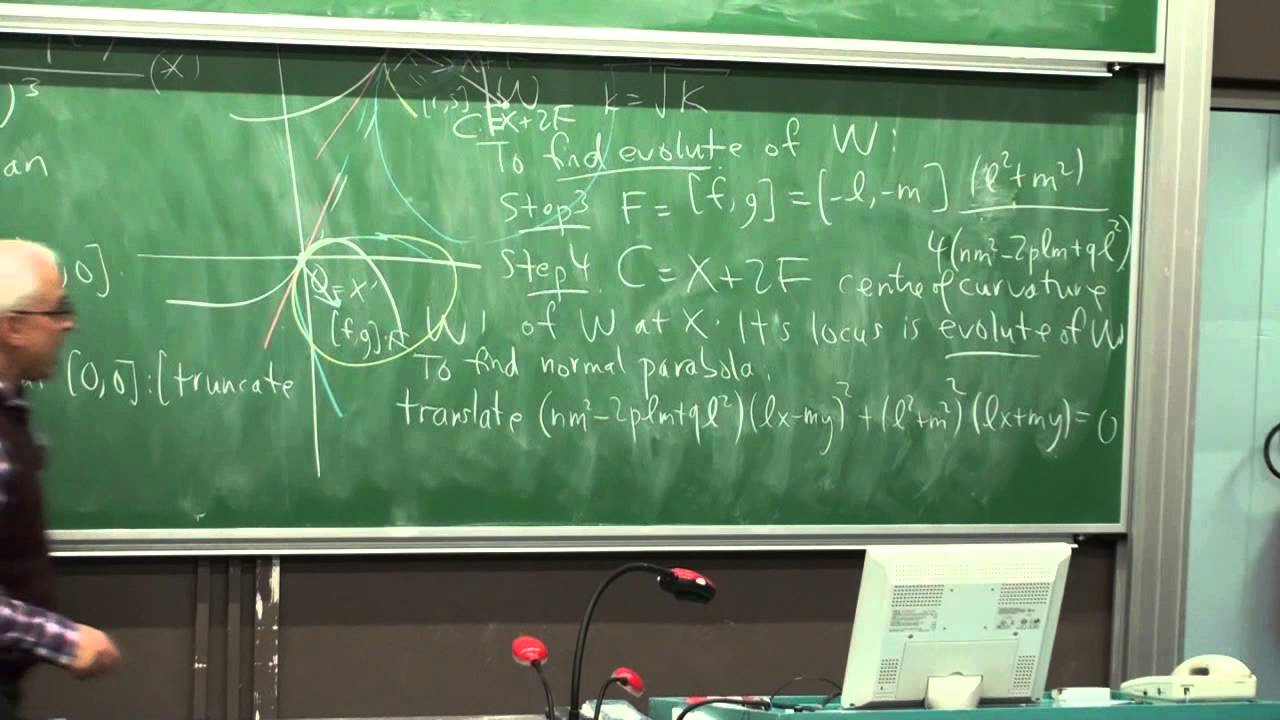 (X)
)³
an
,0].
[0,0]:[truncate
W
k=√K
C=X+2F
To find evolute of W:
Step3 F=[f,g]=[-l,-m] (l²+m²)
4(nm²-2plm+ql²)
Step4. C=X+2F centre of curvature
W of W at X. It's locus is evolute of W
[f,g]
To find normal parabola,
translate (nm²-2plm+ql²)(lx-my)²+(l²+m²)²(lx+my)=0